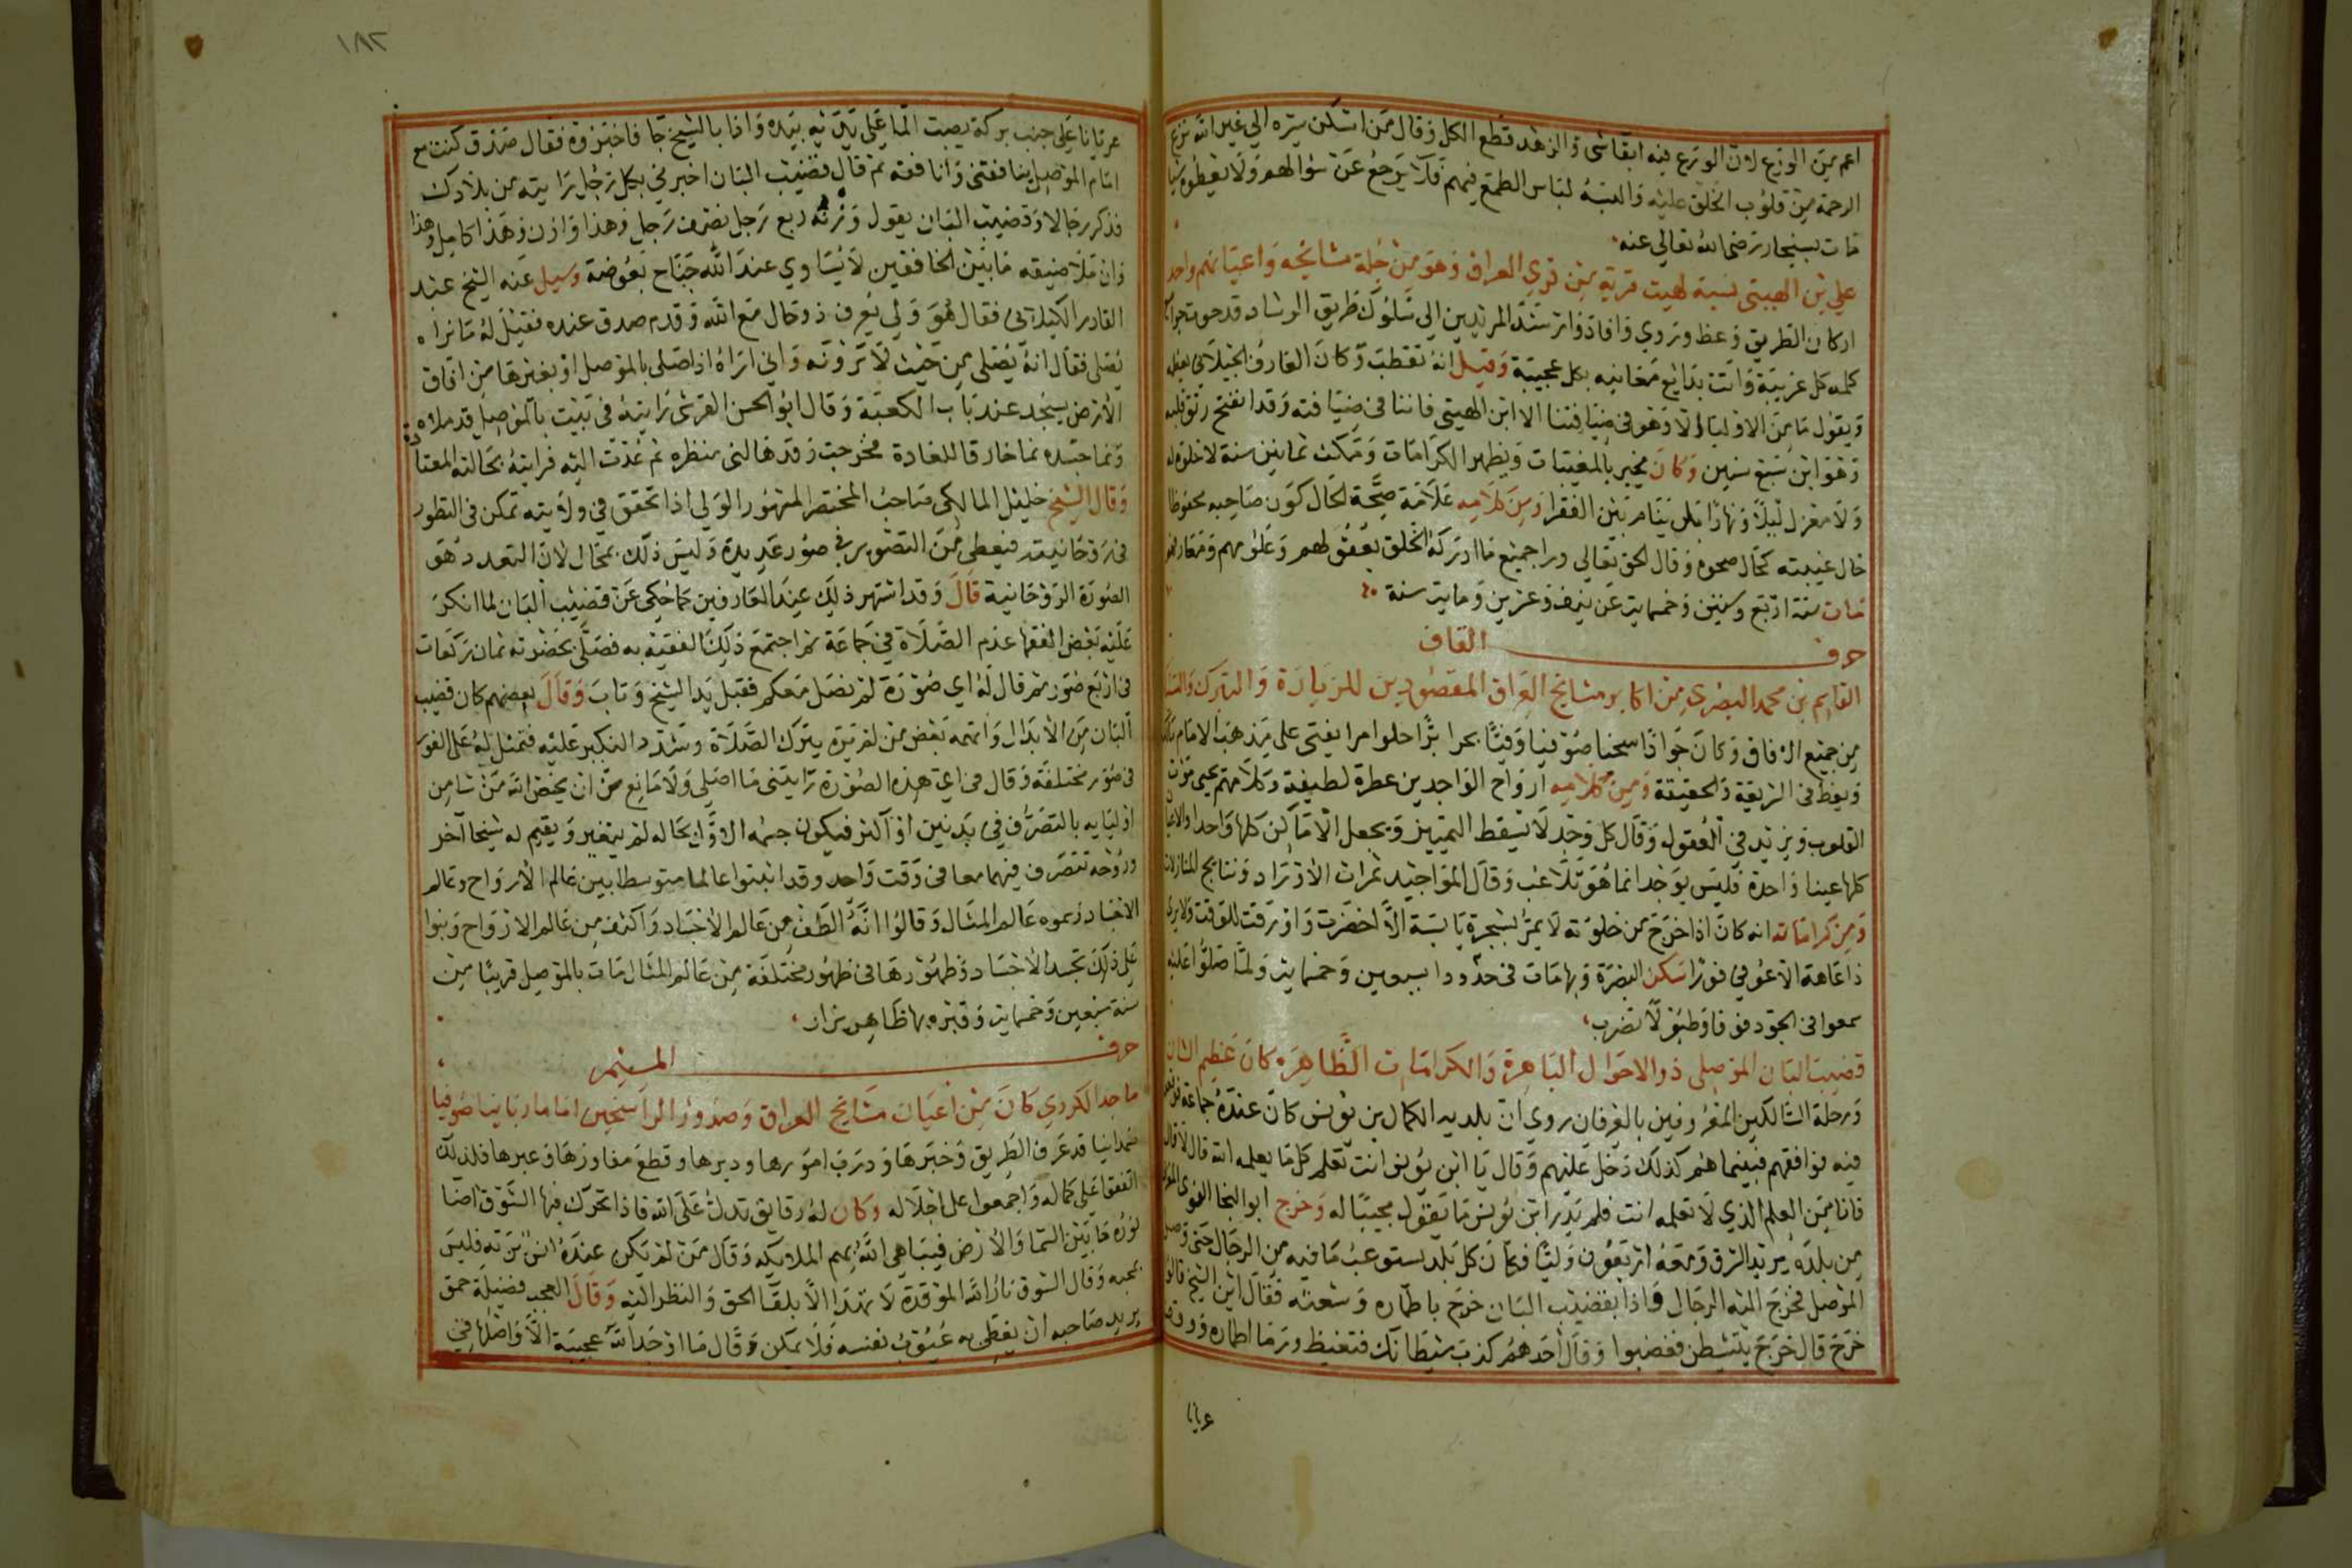 اعم من الورع لان الورع فيه ابقا شى والزهد قطع الكل وقال من سكن سره الي غير الله نزع
الرحمة من قلوب الخلق عليه والبسه لباس الطمع فيهم فلا يرجع عن سوالهم ولا يعطوه شيا
مات بسنجار رضى الله تعالى عنه
علي بن الهيتى نسبة لهيت قرية من قري العراق وهو من جلة مشايخه واعيانهم واحد
اركان الطريق وعظ وروي وافاد وارشد المريدين الى سلوك طريق الرشاد قد حوت
كلمه كل غريبة واتت بدايع معانيه بكل عجيبة وقيل انه تقطب وكان العارف الجيلانى
ويقول ما من الاوليا الا وهو فى ضيافتنا الا ابن الهيتي فاننا فى ضيافته وقد انفتح رتق قلبه
وهو ابن سبع سنين وكان يخبر بالمغيبات ويظهر الكرامات ومكث ثمانين سنة لا خلوة له
ولا معزل ليلا ونهارا بل ينام بين الفقرا ومن كلامه علامة صحة الحال كون صاحبه محفوظا
حال غيبته كحال صحوه وقال الحق تعالى ورا جميع ما ادركه الخلق بعقولهم وعلومهم ومعارفهم
مات سنة اربع وستين وخمسماية عن نيف وعشرين وماية سنة
حرف القاف
القاسم بن محمد البصرى من اكابر مشايخ العراق المقصودين للزيارة والتبرك
من جميع الافاق وكان جوادا سخيا صوفيا وفيا بحرا برا حلوا مرا يفتى على مذهب الامام مالك
ويعظ فى الشريعة والحقيقة ومن كلامه ارواح الواجدين عطرة لطيفة وكلامهم يحيى موات
القلوب ويزيد في العقول وقال كل وجد لا يسقط التمييز ويجعل الاماكن كلها واحدا والاعيان
كلها عينا واحدة فليس بوجد انما هو تلاعب وقال المواجيد ثمرات الاوراد ونتايج المنازلات
ومن كراماته انه كان اذا خرج من خلوته لا يمر بشجرة يابسة الا اخضرت واورقت للوقت ولا يرى
ذا عاهة الا عوفي فورا سكن البصرة وبها مات فى حدود وخمسماية ولما صلوا عليه
سمعوا فى الجو دفوفا وطبولا تضرب
قضيب البان الموصلى ذو الاحوال الباهرة والكرامات الظاهرة كان عظيم الشان
ورحلة السالكين المعروفين بالعرفان روي ان بلديه الكمال بن يونس كان عنده جماعة
فيه فوافقهم فبينما هم كذلك دخل عليهم وقال يا ابن يونس انت تعلم كل ما يعلمه الله قال لا قال
فانا من العلم الذي لا تعلمه انت فلم يدر ابن يونس ما يقول مجيبا له وخرج ابو النجا
من بلده يريد الشرق ومعه اربعون وليا وكان كل بلد يستوعب ما فيه من الرجال حتى وصل
الموصل فخرج اليه الرجال واذا بقضيب البان خرج باطماره وشعثه فقال اين الشيخ قالوا
خرج قال خرج يتشيطن فغضبوا وقال احدهم كذب شيطانك فتغيظ ورما اطماره
عريانا
١٨٢
عريانا على جنب بركة يصبت الما على يديه بيده واذا بالشيخ جا فاخبروه فقال صدق كنت مع
امام الموصل ثم قال قضيب البان اخبرني بكل رجل رايته من بلادك
فذكر رجالا وقضيب البان يقول وزنه ربع رجل نصف رجل وهذا وازن وهذا كامل وهذا
وان ملا صيته ما بين الخافقين لا يساوي عند الله جناح بعوضة وسيل عنه الشيخ عبد
القادر الكيلانى فقال هو ولى مقرب ذو حال مع الله وقدم صدق عنده فقيل له ما نراه
يصلى فقال انه يصلى من حيث لا ترونه واني اراه اذا صلى بالموصل او بغيرها من افاق
الارض يسجد عند باب الكعبة وقال ابو الحسن القرشى رايته فى بيت بالموصل قد ملاه
ونما جسده نما خارقا للعادة فخرجت وقد هالنى منظره ثم عدت اليه فرايته بحالته المعتادة
وقال الشيخ خليل المالكى صاحب المختصر المشهور الولي اذا تحقق في ولايته تمكن فى التطور
فى روحانيته فيعطى من التصوير في صور عديدة وليس ذلك بمحال لان التعدد هو
الصورة الروحانية قال وقد اشتهر ذلك عند العارفين كما حكى عن قضيب البان لما انكر
عليه بعض الفقها عدم الصلاة في جماعة ثم اجتمع ذلك الفقيه به فصلى بحضرته ثمان ركعات
فى اربع صور ثم قال له اي صورة لم تصل معكم فقبل يد الشيخ وتاب وقال بعضهم كان قضيب
البان من الابدال واتهمه بعض من لم يره بترك الصلاة وشدد النكير عليه فتمثل له على الفور
فى صور مختلفة وقال فى اي هذه الصورة رايتنى ما اصلى ولا مانع من ان يخص الله من شا من
اوليايه بالتصرف في بدنين او اكثر فيكون جسمه الاول بحاله لم يتغير ويقيم له شبحا آخر
وروحه تتصرف فيهما معا فى وقت واحد وقد اثبتوا عالما متوسطا بين عالم الارواح وعالم
الاجساد وسموه عالم المثال وقالوا انه الطف من عالم الاجساد واكثف من عالم الارواح وبنوا
على ذلك تجسد الاجساد وظهورها فى ظهور مختلفة من عالم المثال مات بالموصل قريبا من
سنة سبعين وخمسماية وقبره بها ظاهر يزار
حرف الميم
ماجد الكردي كان من اعيان مشايخ العراق وصدور الراسخين اماما ربانيا صوفيا
صمدانيا قد عرف الطريق وخبرها ودرب امورها ودبرها وقطع مفاوزها وعبرها فلذلك
اتفقوا على كماله واجمعوا على اجلاله وكان له رقايق تدل على الله فاذا تحرك فيها الشوق اضا
نوره ما بين السما والارض فيباهى الله بهم الملايكه وقال من لم يكن عنده انس بربه فليس
بمحبه وقال الشوق نار الله الموقدة لا تهدا الا بلقا الحق والنظر اليه وقال العجب فضيلة حمق
يريد صاحبه ان يغطى به عيوب نفسه فلا يمكن وقال ما اوجد الله عجيبة الا واصلها في